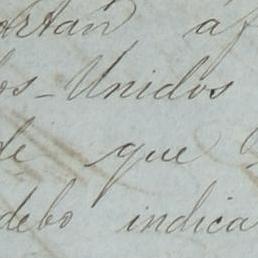 ortan af
os-Unidos
de que
debo indica